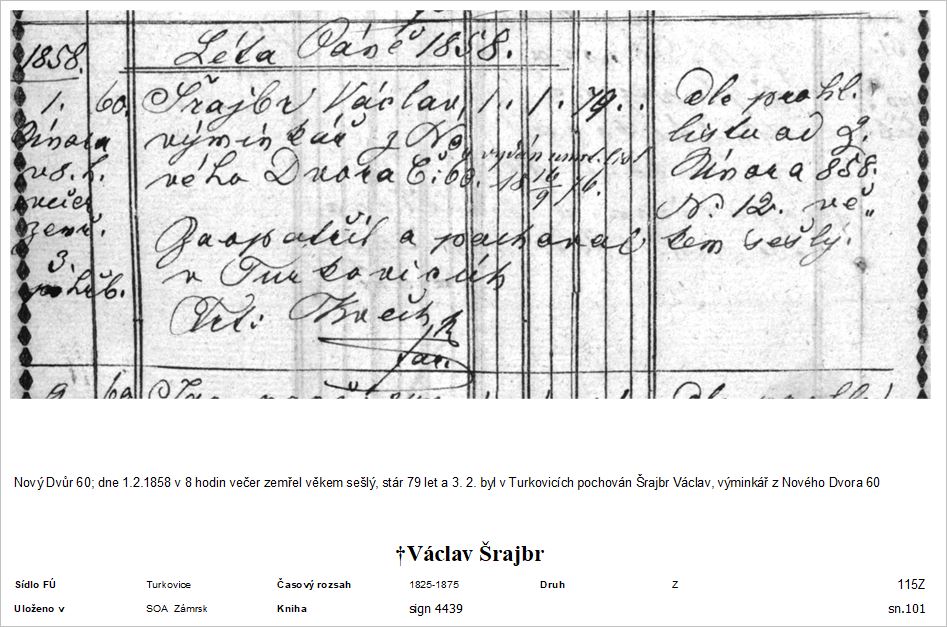 1858. Léta Páně 1858.
1. 60. Šrajbr Václav, 1. 1. 79. Dle prohl.
Února výminkář z No- listu od 2.
v 8. h. vého Dvora Č: 60. vydán úmrt. list 18 16/9 76. Února 858.
večer N. 12. vě-
zemř. Zaopatřil a pochoval kem sešlý.
3. v Turkovicích
pohřb.
far.
Nový Dvůr 60; dne 1.2.1858 v 8 hodin večer zemřel věkem sešlý, stár 79 let a 3. 2. byl v Turkovicích pochován Šrajbr Václav, výminkář z Nového Dvora 60
†Václav Šrajbr
Sídlo FÚ Turkovice Časový rozsah 1825-1875 Druh Z 115Z
Uloženo v SOA Zámrsk Kniha sign 4439 sn.101